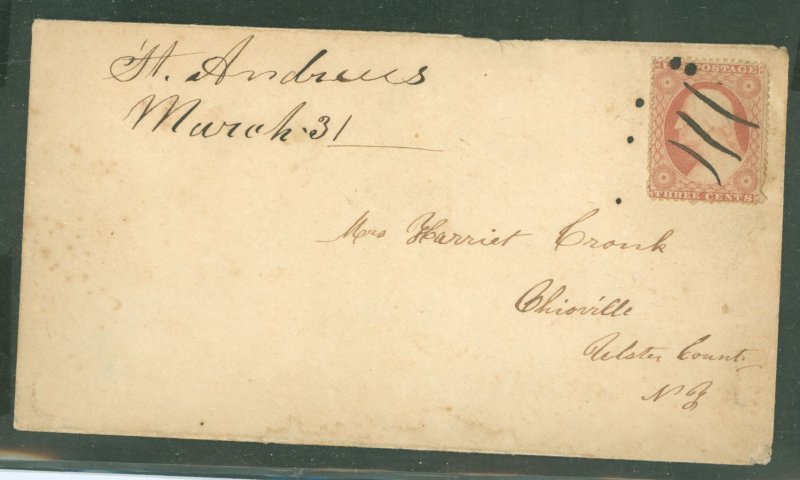 St. Andrews
March 31
POSTAGE
THREE CENTS
Mrs Harriet Cronk
Ohioville
Ulster County
N Y